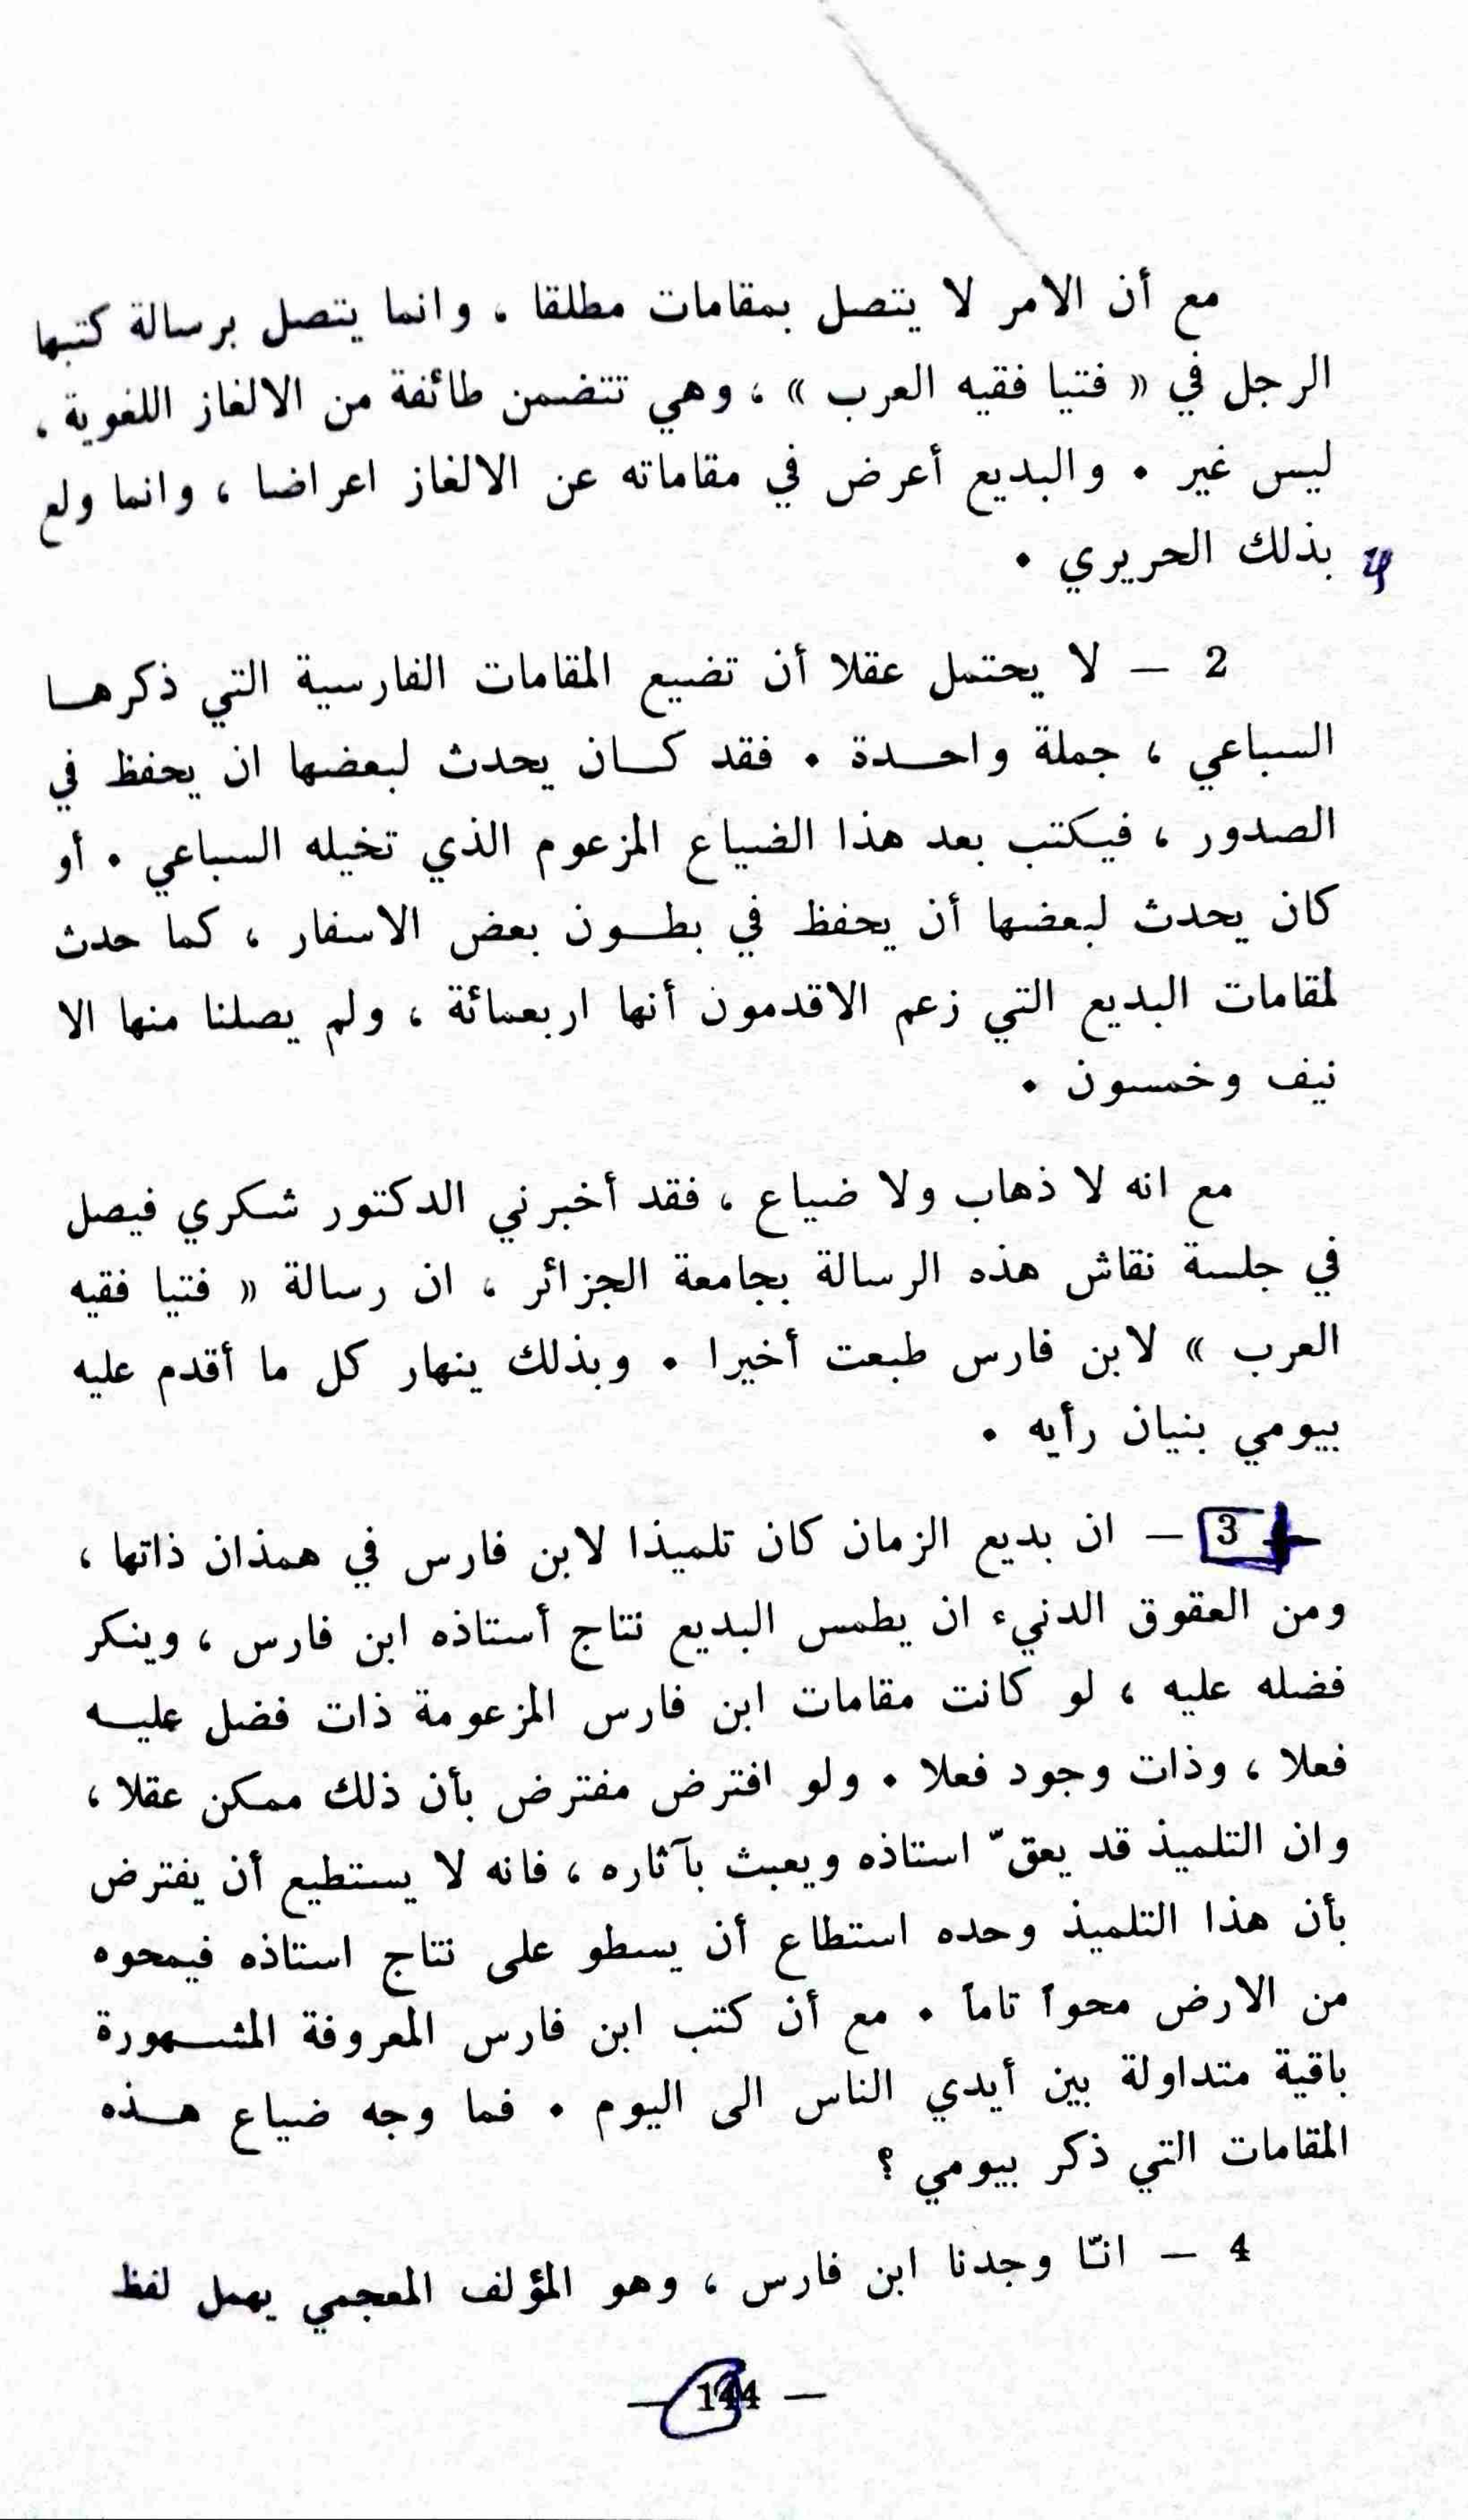 مع أن الامر لا يتصل بمقامات مطلقا ، وانما يتصل برسالة كتبها
الرجل في « فتيا فقيه العرب » ، وهي تتضمن طائفة من الالغاز اللغوية ،
ليس غير . والبديع أعرض في مقاماته عن الالغاز اعراضا ، وانما ولع
بذلك الحريري .
2 — لا يحتمل عقلا أن تضيع المقامات الفارسية التي ذكرهـا
السباعي ، جملة واحـدة . فقد كـان يحدث لبعضها ان يحفظ في
الصدور ، فيكتب بعد هذا الضياع المزعوم الذي تخيله السباعي . أو
كان يحدث لبعضها أن يحفظ في بطـون بعض الاسفار ، كما حدث
لمقامات البديع التي زعم الاقدمون أنها اربعمائة ، ولم يصلنا منها الا
نيف وخمسون .
مع انه لا ذهاب ولا ضياع ، فقد أخبرني الدكتور شكري فيصل
في جلسة نقاش هذه الرسالة بجامعة الجزائر ، ان رسالة « فتيا فقيه
العرب » لابن فارس طبعت أخيرا . وبذلك ينهار كل ما أقدم عليه
بيومي بنيان رأيه .
3 — ان بديع الزمان كان تلميذا لابن فارس في همذان ذاتها ،
ومن العقوق الدنيء ان يطمس البديع نتاج أستاذه ابن فارس ، وينكر
فضله عليه ، لو كانت مقامات ابن فارس المزعومة ذات فضل عليـه
فعلا ، وذات وجود فعلا . ولو افترض مفترض بأن ذلك ممكن عقلا ،
وان التلميذ قد يعقّ استاذه ويعبث بآثاره ، فانه لا يستطيع أن يفترض
بأن هذا التلميذ وحده استطاع أن يسطو على نتاج استاذه فيمحوه
من الارض محواً تاماً . مع أن كتب ابن فارس المعروفة المشـهورة
باقية متداولة بين أيدي الناس الى اليوم . فما وجه ضياع هـذه
المقامات التي ذكر بيومي ؟
4 — انّا وجدنا ابن فارس ، وهو المؤلف المعجمي يهمل لفظ
— 144 —